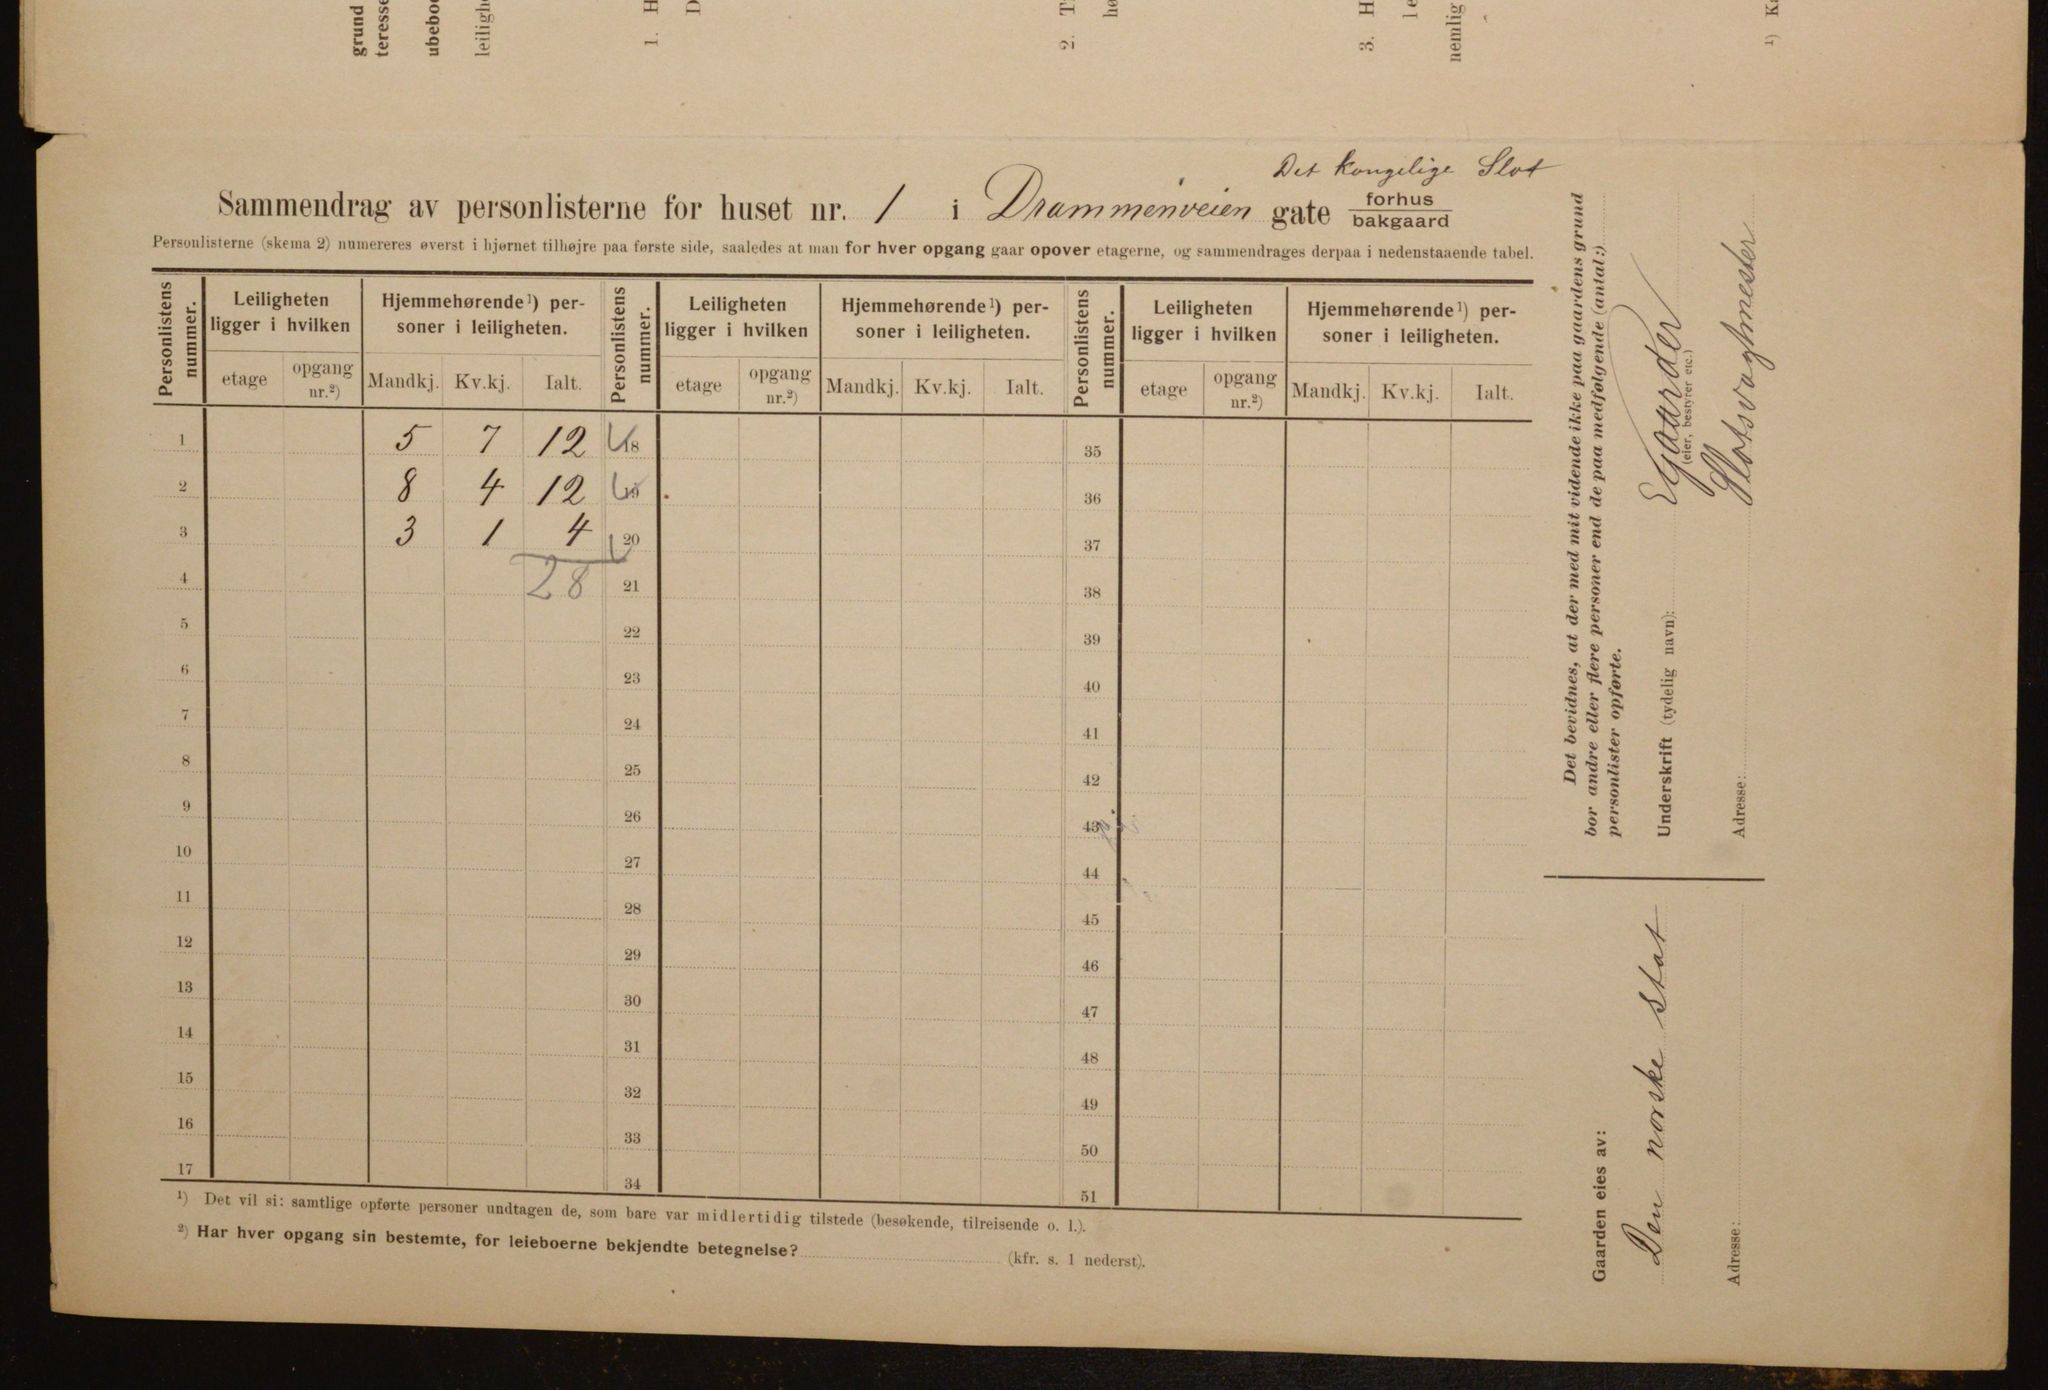 grund
teresse
ubeboe
leilighe
1. H
D
2. T
hø
3. H
le
nemlig
¹) Ka
Det kongelige Slot
Sammendrag av personlisterne for huset nr. 1 i Drammenveien gate forhus
bakgaard
Personlisterne (skema 2) numereres øverst i hjørnet tilhøjre paa første side, saaledes at man for hver opgang gaar opover etagerne, og sammendrages derpaa i nedenstaaende tabel.
Personlistens nummer.
Leiligheten ligger i hvilken
Hjemmehørende¹) personer i leiligheten.
Personlistens nummer.
Leiligheten ligger i hvilken
Hjemmehørende¹) personer i leiligheten.
Personlistens nummer.
Leiligheten ligger i hvilken
Hjemmehørende¹) personer i leiligheten.
etage opgang nr.²) Mandkj. Kv.kj. Ialt. etage opgang nr.²) Mandkj. Kv.kj. Ialt. etage opgang nr.²) Mandkj. Kv.kj. Ialt.
1 5 7 12 18 35
2 8 4 12 19 36
3 3 1 4 20 37
4 28 21 38
5 22 39
6 23 40
7 24 41
8 25 42
9 26 43
10 27 44
11 28 45
12 29 46
13 30 47
14 31 48
15 32 49
16 33 50
17 34 51
¹) Det vil si: samtlige opførte personer undtagen de, som bare var midlertidig tilstede (besøkende, tilreisende o. l.).
²) Har hver opgang sin bestemte, for leieboerne bekjendte betegnelse? (kfr. s. 1 nederst).
Det bevidnes, at der med mit vidende ikke paa gaardens grund
bor andre eller flere personer end de paa medfølgende (antal:)
personlister opførte.
Underskrift (tydelig navn): E Gaarder
(eier, bestyrer etc.)
Adresse: Slotsvagtmester
Gaarden eies av:
Den norske Stat
Adresse: